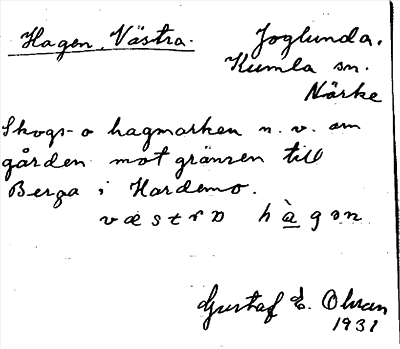 Hagen, Västra.
Joglunda.
Kumla sn.
Närke
Skogs- o hagmarken n. v. om
gården mot gränsen till
Berga i Hardemo.
væstrɒ hàgən
Gustaf E. Ohran
1931